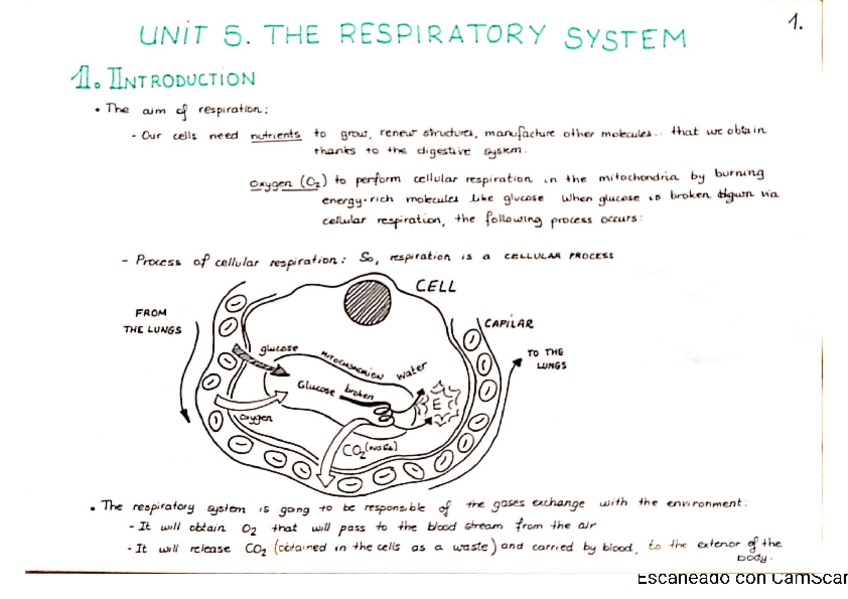 1.
UNIT 5. THE RESPIRATORY SYSTEM
1. INTRODUCTION
• The aim of respiration:
- Our cells need nutrients to grow, renew structures, manufacture other molecules... that we obtain
thanks to the digestive system.
Oxygen (O₂) to perform cellular respiration in the mitochondria by burning
energy-rich molecules like glucose. When glucose is broken down via
cellular respiration, the following process occurs:
- Process of cellular respiration: So, respiration is a CELLULAR PROCESS
CELL
FROM
THE LUNGS
CAPILAR
TO THE
LUNGS
glucose
MITOCHONDRION
water
Glucose broken
E
oxygen
CO₂ (waste)
• The respiratory system is going to be responsible of the gases exchange with the environment:
- It will obtain O₂ that will pass to the blood stream from the air
- It will release CO₂ (obtained in the cells as a waste) and carried by blood, to the exterior of the
body.
Escaneado con CamScan